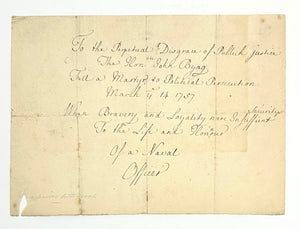 To the Perpetual Disgrace of Publick Justice
The Honble John Byng
Fell a Martyr to Political Persecution
March ye 14 1757
When Bravery and Loyality were Insufficient Security
To the Life and Honour
Of a Naval
Officer